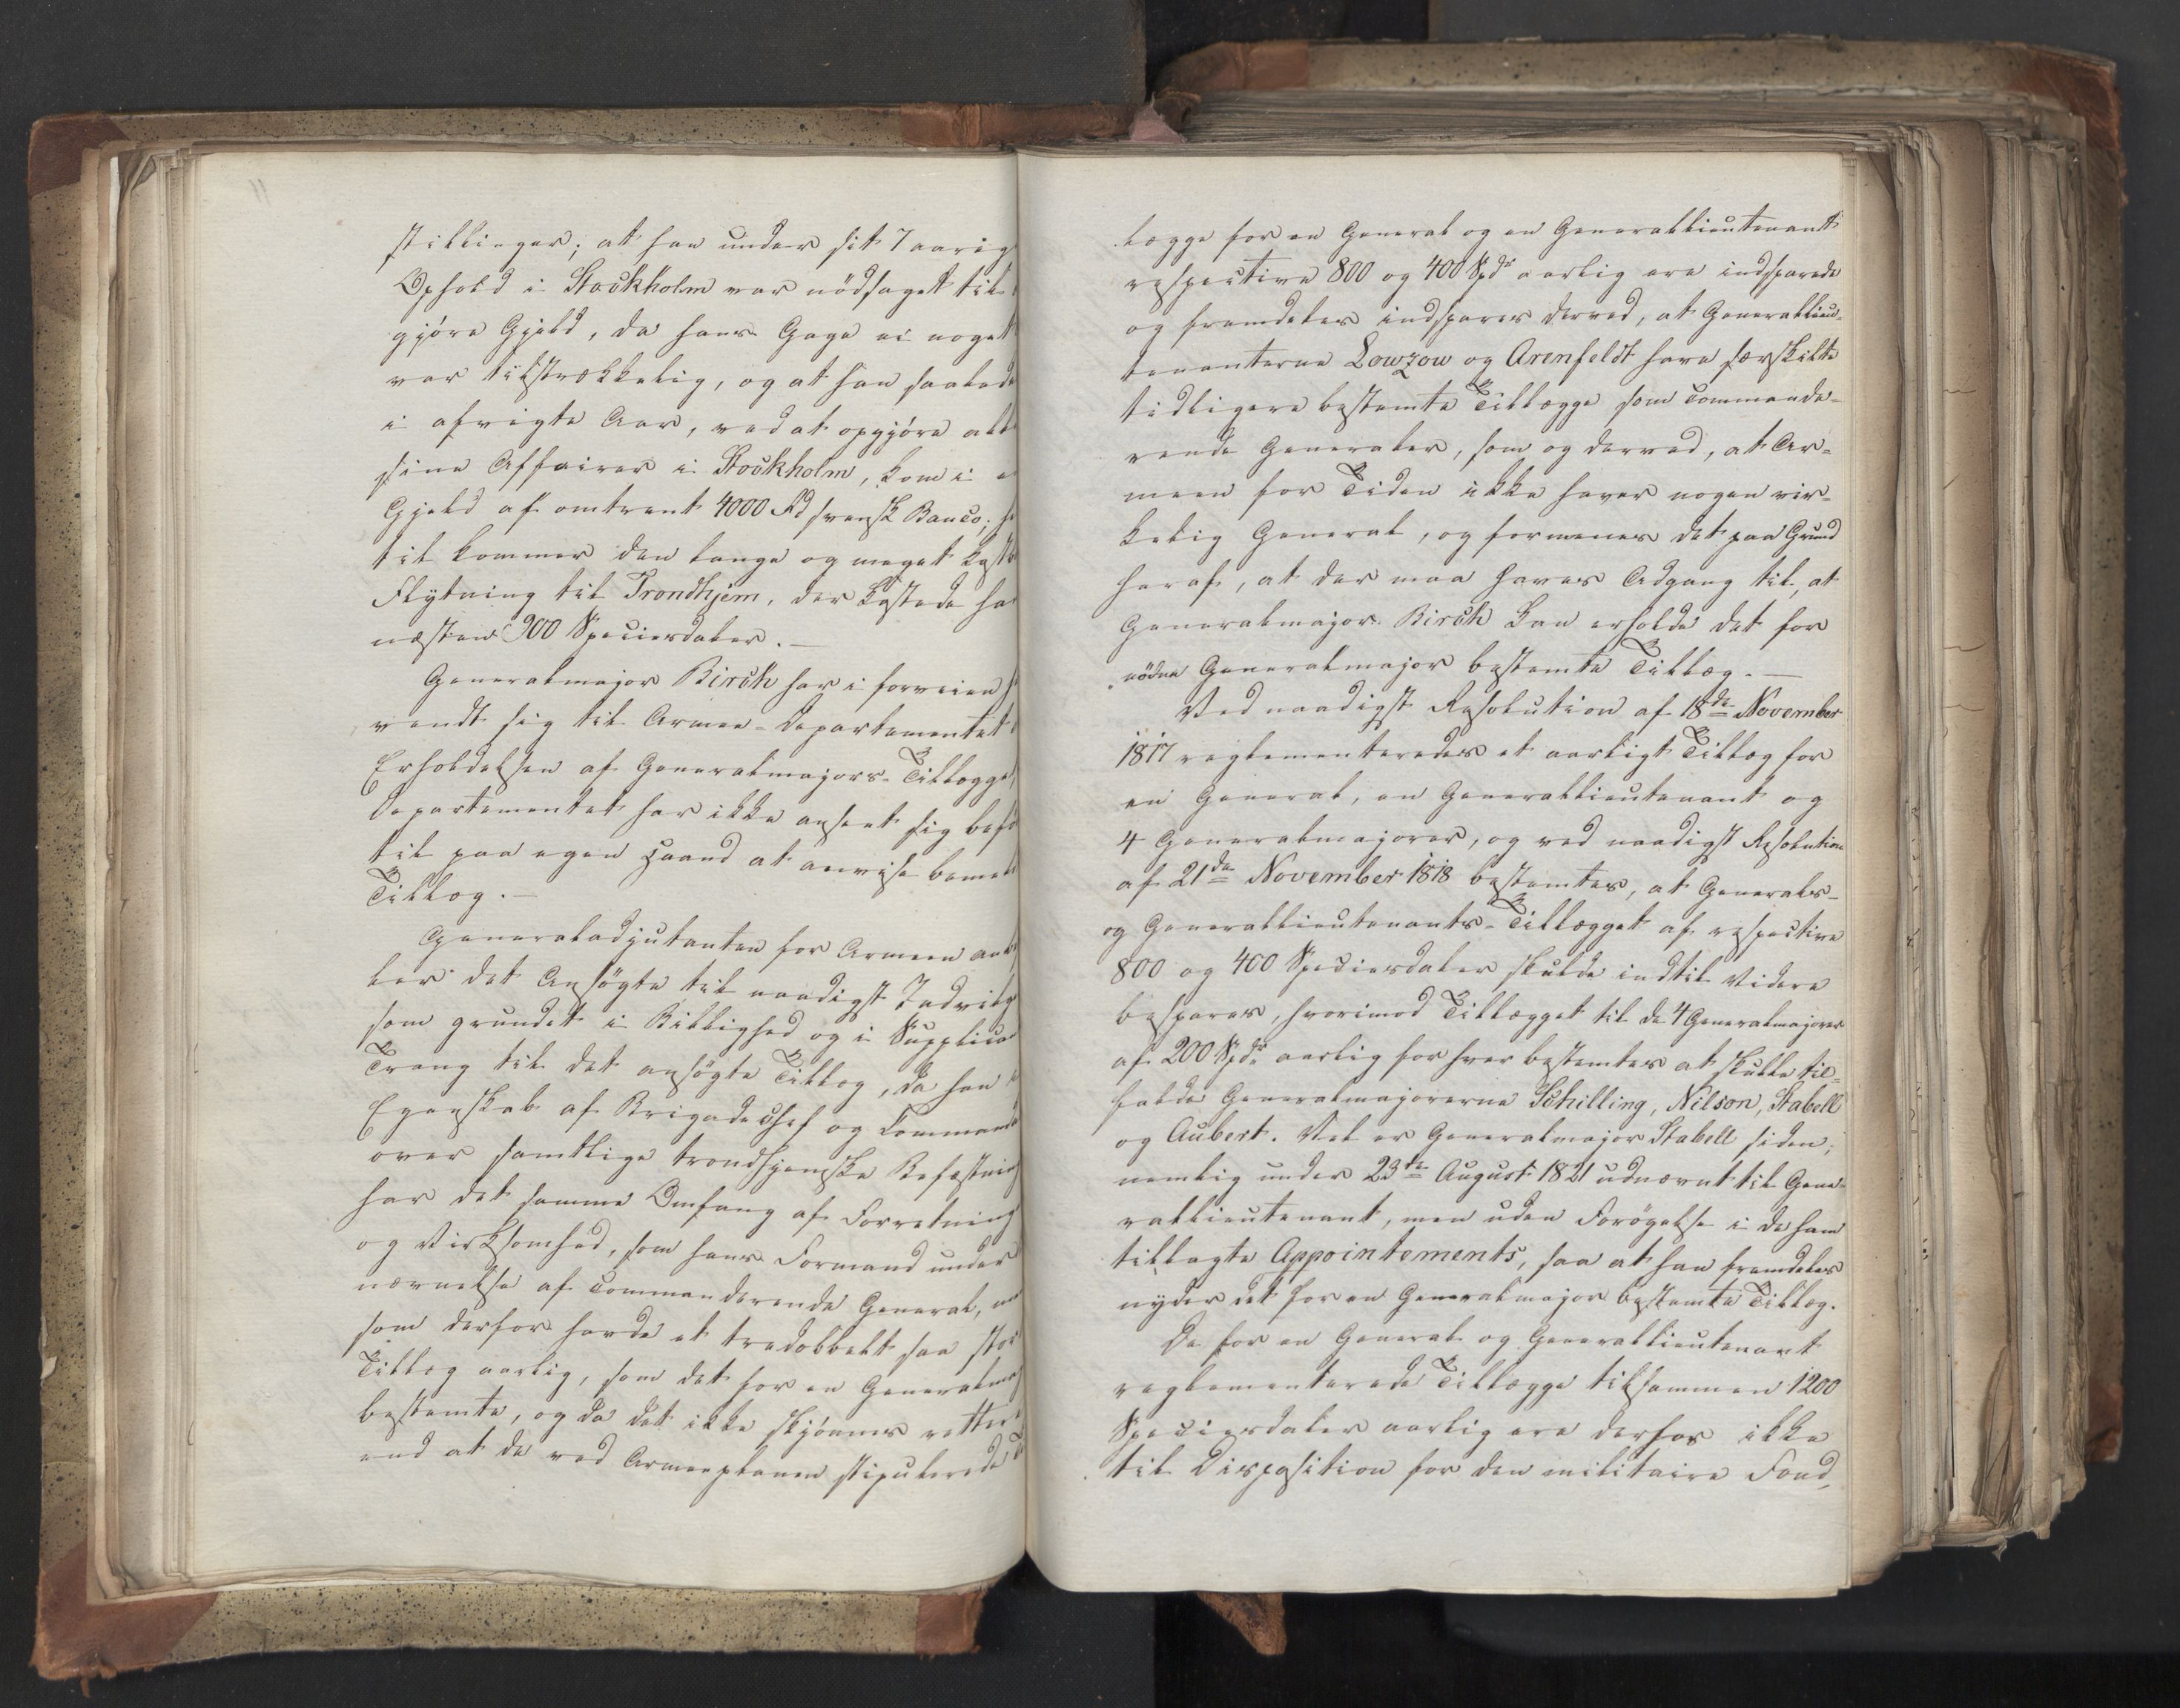 stillinger; at han under sit 7 aarig
Ophold i Stockholm var nödsaget til
gjöre Gjeld, da hans Gage ei noget
var tilstrækkelig, og at han saalede
i afvigte Aar, ved at opgjöre all
sine Affairer i Stockholm, kom i e
Gjeld af omtrent 4000 Rd svensk Banco; he
til kommer den lange og meget kost
Flytning til Trondhjem, der kostede ha
næsten 900 Speciesdaler.—
Generalmajor Birch har i forveien h
vendt sig til Armee-Departementet
Erholdelsen af Generalmajors-Tillægget
Departementet har ikke anseet sig befö
til paa egen Haand at anvise bemel
Tillæg.—
Generaladjutanten for Armeen anb
ler det Ansögte til naadigst Indvilg
som grundet i Billighed og i Supplica
Trang til det ansögte Tillæg, da han
Egenskab af Brigadechef og Commanda
over samtlige trondhjemske Befæstning
har det samme Omfang af Forretning
og Virksomhed, som hans Formand under
nævnelse af Commanderende General, m
som derfor havde et tredobbelt saa stor
Tillæg aarlig, som det for en Generalmaj
bestemte, og da det ikke skjönnes retter
end at de ved Armeeplanen stipulerede T
lægge for en General og en Generallieutenant
respective 800 og 400 Spdr aarlig ere indsparede
og fremdeles indspares derved, at Generallieu-
tenanterne Lowzow og Arenfeldt have særskilte
tidligere bestemte Tillægge som Commande-
rende Generaler, som og derved, at Ar-
meen for Tiden ikke haver nogen vir-
kelig General, og formenes det paa Grund
heraf, at der maa haves Adgang til, at
Generalmajor Birch kan erholde det for
Generalmajor bestemte Tillæg.—
Ved naadigst Resolution af 18de November
1817 reglementeredes et aarligt Tillæg for
en General, en Generallieutenant og
4 Generalmajorer, og ved naadigst Resolution
af 21de November 1818 bestemtes, at Generals-
og Generallieutenants-Tillægget af respective
800 og 400 Speciesdaler skulde indtil Videre
bespares, hvorimod Tillægget til de 4 Generalmajorer
af 200 Spdr aarlig for hver bestemtes at skulle til-
falde Generalmajorerne Schilling, Nilson, Stabell
og Aubert. Vel er Generalmajor Stabell siden,
nemlig under 23de August 1821 udnævnt til Gene-
rallieutenant, men uden Forögelse i de ham
tillagte Appointements, saa at han fremdeles
nyder det for en Generalmajor bestemte Tillæg.
De for en General og Generallieutenant
reglementerede Tillægge tilsammen 1200
Speciesdaler aarlig ere derfor ikke
til Disposition for den militaire Fond,